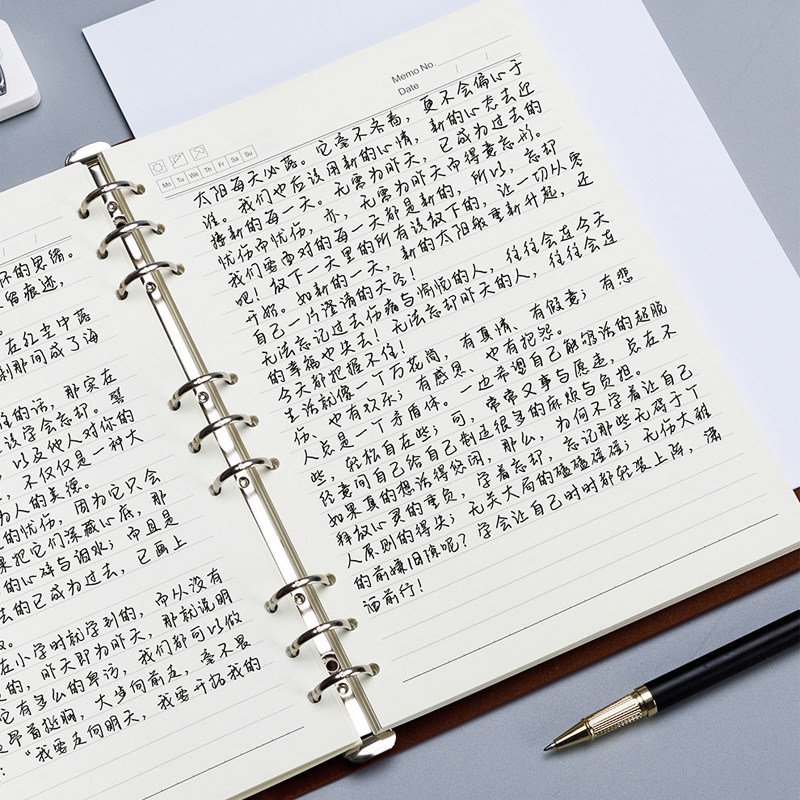 怀的思绪。
留痕迹,
在红尘中落
刹那间成了海
往的话,那实在
该学会忘却。譬
,以及他人对你的
,不仅仅是一种大
为人的美德。
的忧伤,因为它只会
果把它们深藏心底,那
的心碎与泪水;而且是
去的已成为过去,已画上
在小学时就学到的,而从没有
的,昨天即为昨天,那就说明
它有多么的卑,我们都可以做
昂首挺胸,大步向前走,毫不畏
:"我要走向明天,我要开拓我的
Memo No.
Date / /
Mo Tu We Th Fr Sa Su
太阳每天必落。它毫不吝啬,更不会偏心于
谁。我们也应该用新的心情,新的心态去迎
接新的每一天。无需为昨天,已成为过去的
忧伤而忧伤,亦,无需为昨天而得意忘形。
我们要面对的每一天都是新的,所以,忘却
吧!放下一天里的所有该放下的,让一切从零
开始。如新的一天,新的太阳般重新升起,还
自己一片澄清的天空!
无法忘记过去伤痛与愉悦的人,往往会连今天
的幸福也失去!无法忘却昨天的人,往往会连
今天都把握不住!
生活就像一个万花筒,有真情、有假意;有悲
伤、也有欢乐;有感恩、也有抱怨。
人总是一个矛盾体。一边希望自己能够活的超脱
些,轻松自在些;可,常常又事与愿违,总在不
经意间自己给自己制造很多的麻烦与负担。
如果真的想活得悠闲,那么,为何不学着让自己
释放心灵的重负,学着忘却,忘记那些无碍于个
人原则的得失;无关大局的磕磕碰碰;无伤大雅
的前嫌旧隙呢?学会让自己时时都轻装上阵,潇
洒前行!